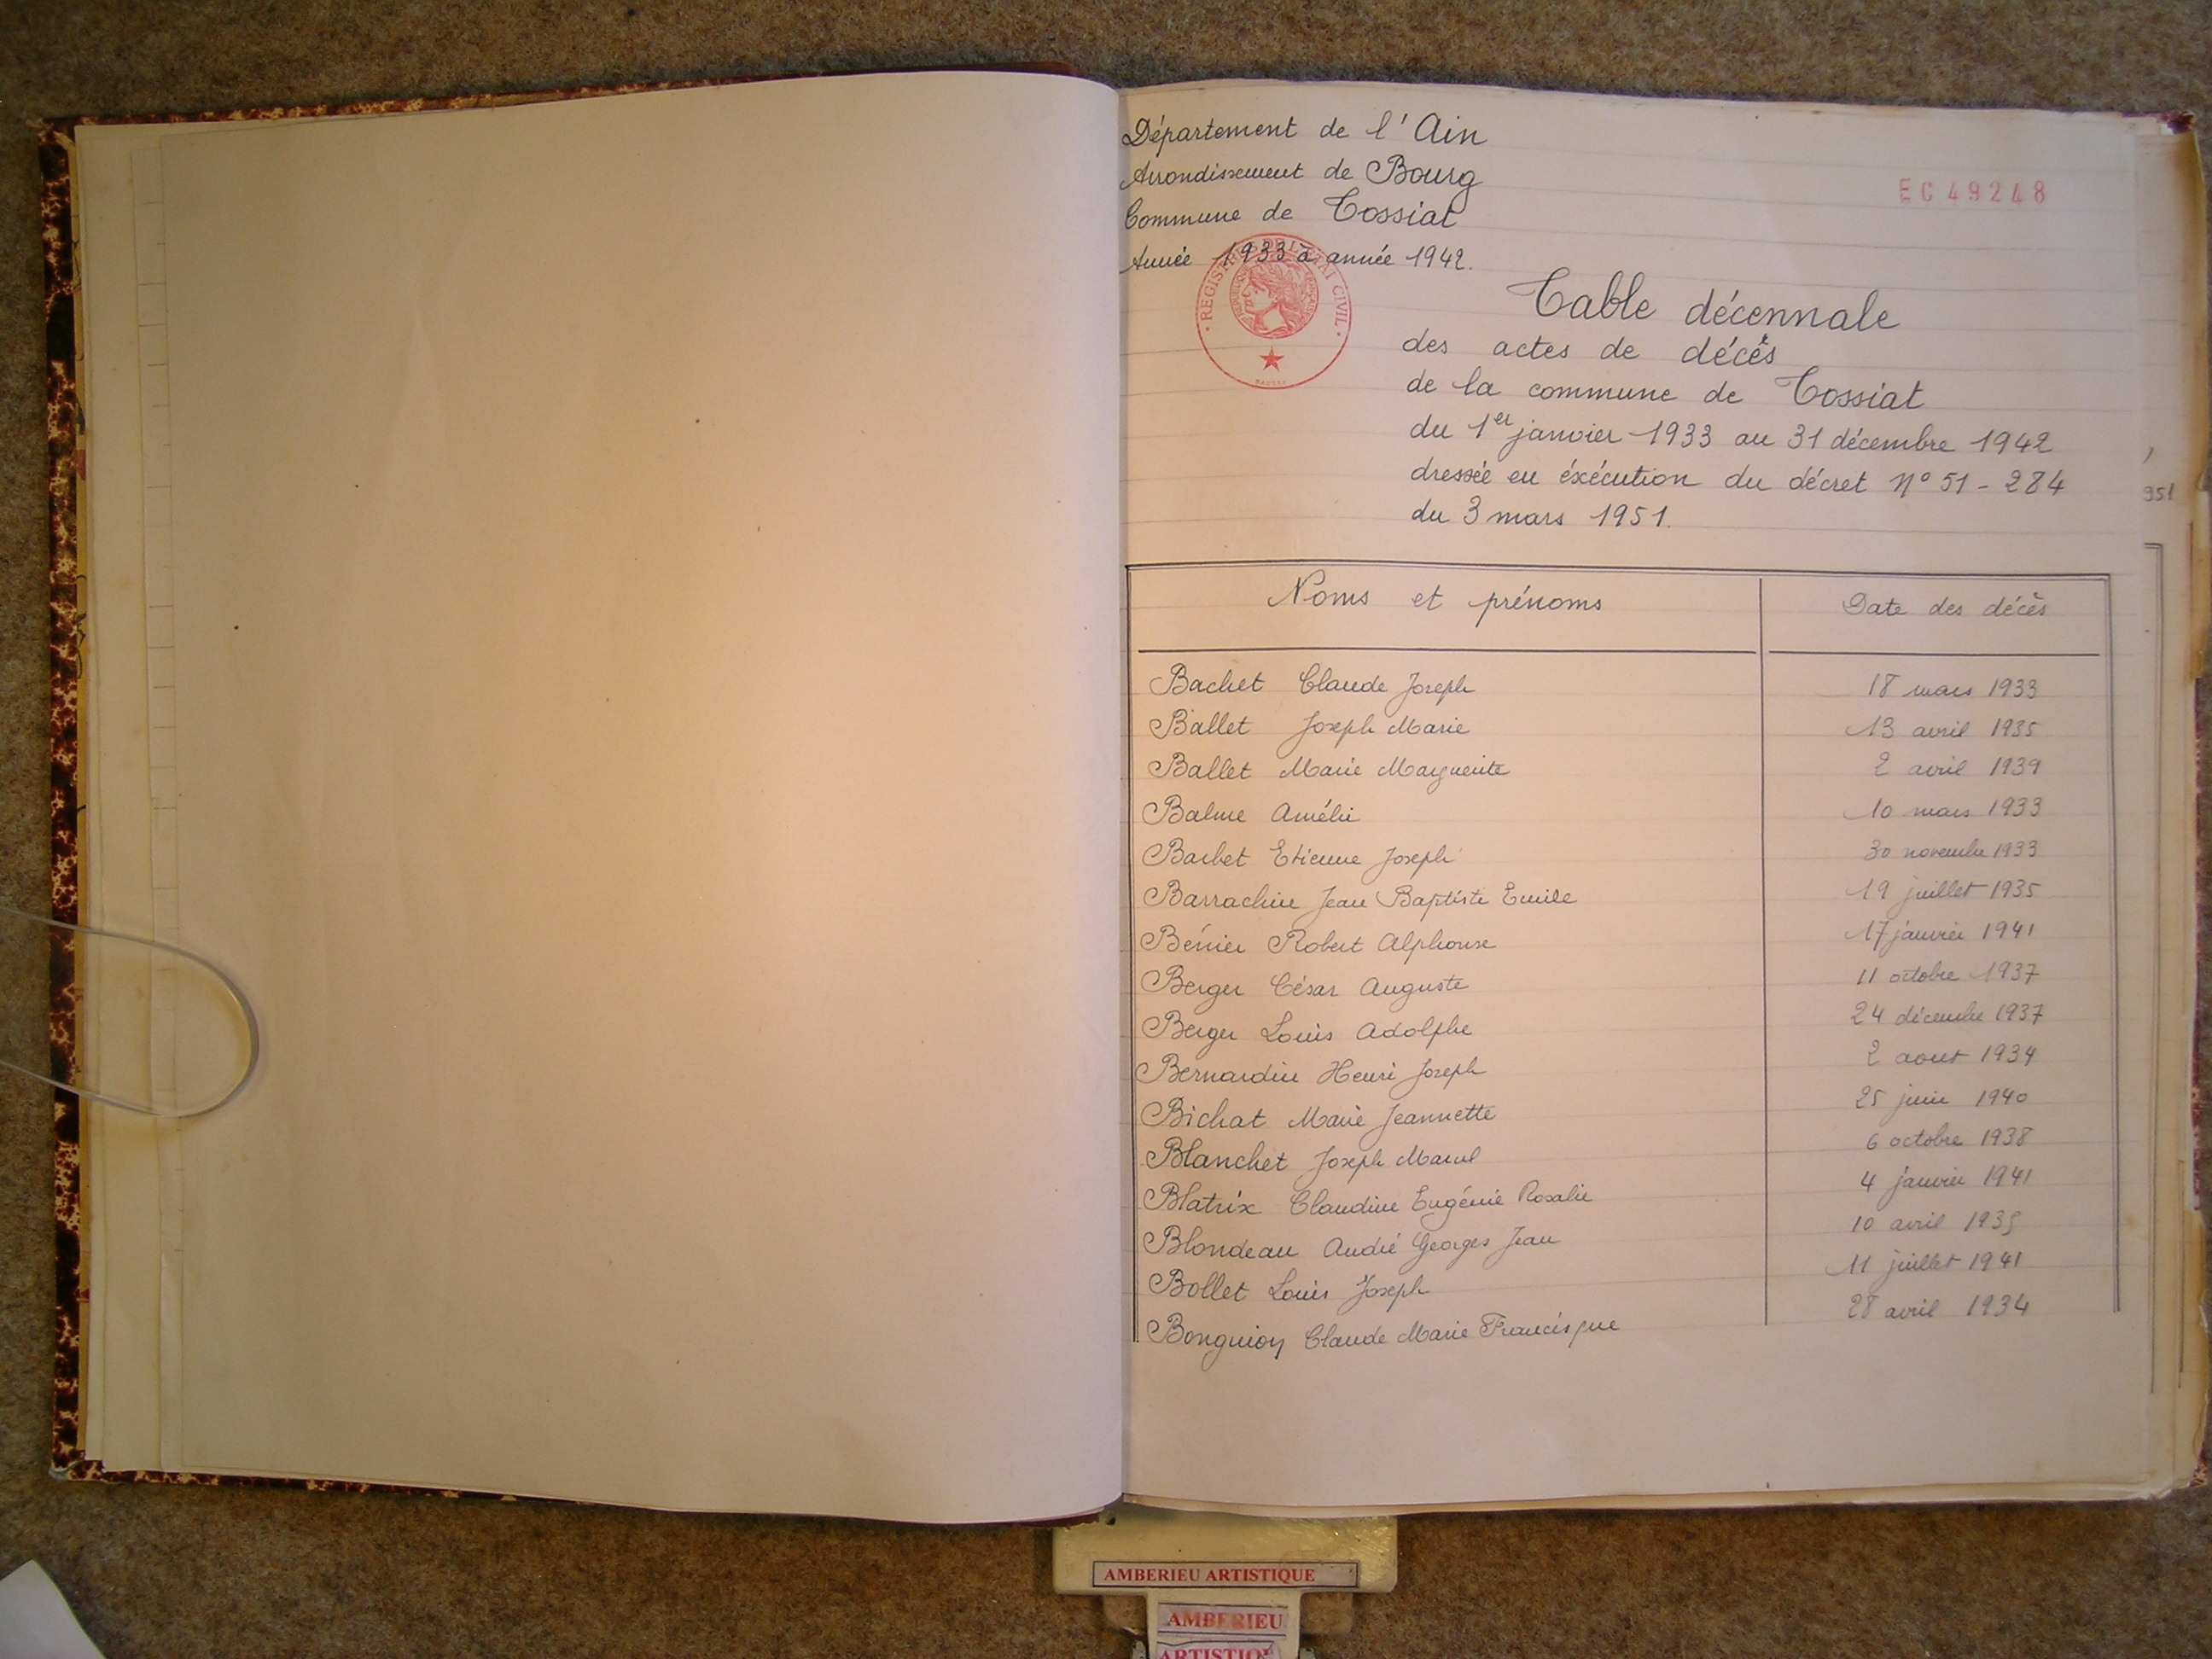 Département de l'Ain
Arrondissement de Bourg
Commune de Tossiat
Année 1933 à année 1942.
EC 49248
REGISTRES DE L'ETAT CIVIL
Table décennale
des actes de décès
de la commune de Tossiat
du 1er janvier 1933 au 31 décembre 1942
dressée en éxécution du décret N° 51-284
du 3 mars 1951.
951
Noms et prénoms Date des décès
Bachet Claude Joseph 18 mars 1933
Ballet Joseph Marie 13 avril 1935
Ballet Marie Marguerite 2 avril 1939
Balme Amélie 10 mars 1933
Barbet Etienne Joseph 30 novembre 1933
Barrachin Jean Baptiste Emile 19 juillet 1935
Bénier Robert Alphonse 17 janvier 1941
Berger César Auguste 11 octobre 1937
Berger Louis Adolphe 24 décembre 1937
Bernardin Henri Joseph 2 aout 1934
Bichat Marie Jeannette 25 juin 1940
Blanchet Joseph Marcel 6 octobre 1938
Blatrix Claudine Eugénie Rosalie 4 janvier 1941
Blondeau André Georges Jean 10 avril 1935
Bollet Louis Joseph 11 juillet 1941
Bonguion Claude Marie Francisque 28 avril 1934
AMBERIEU ARTISTIQUE
AMBERIEU